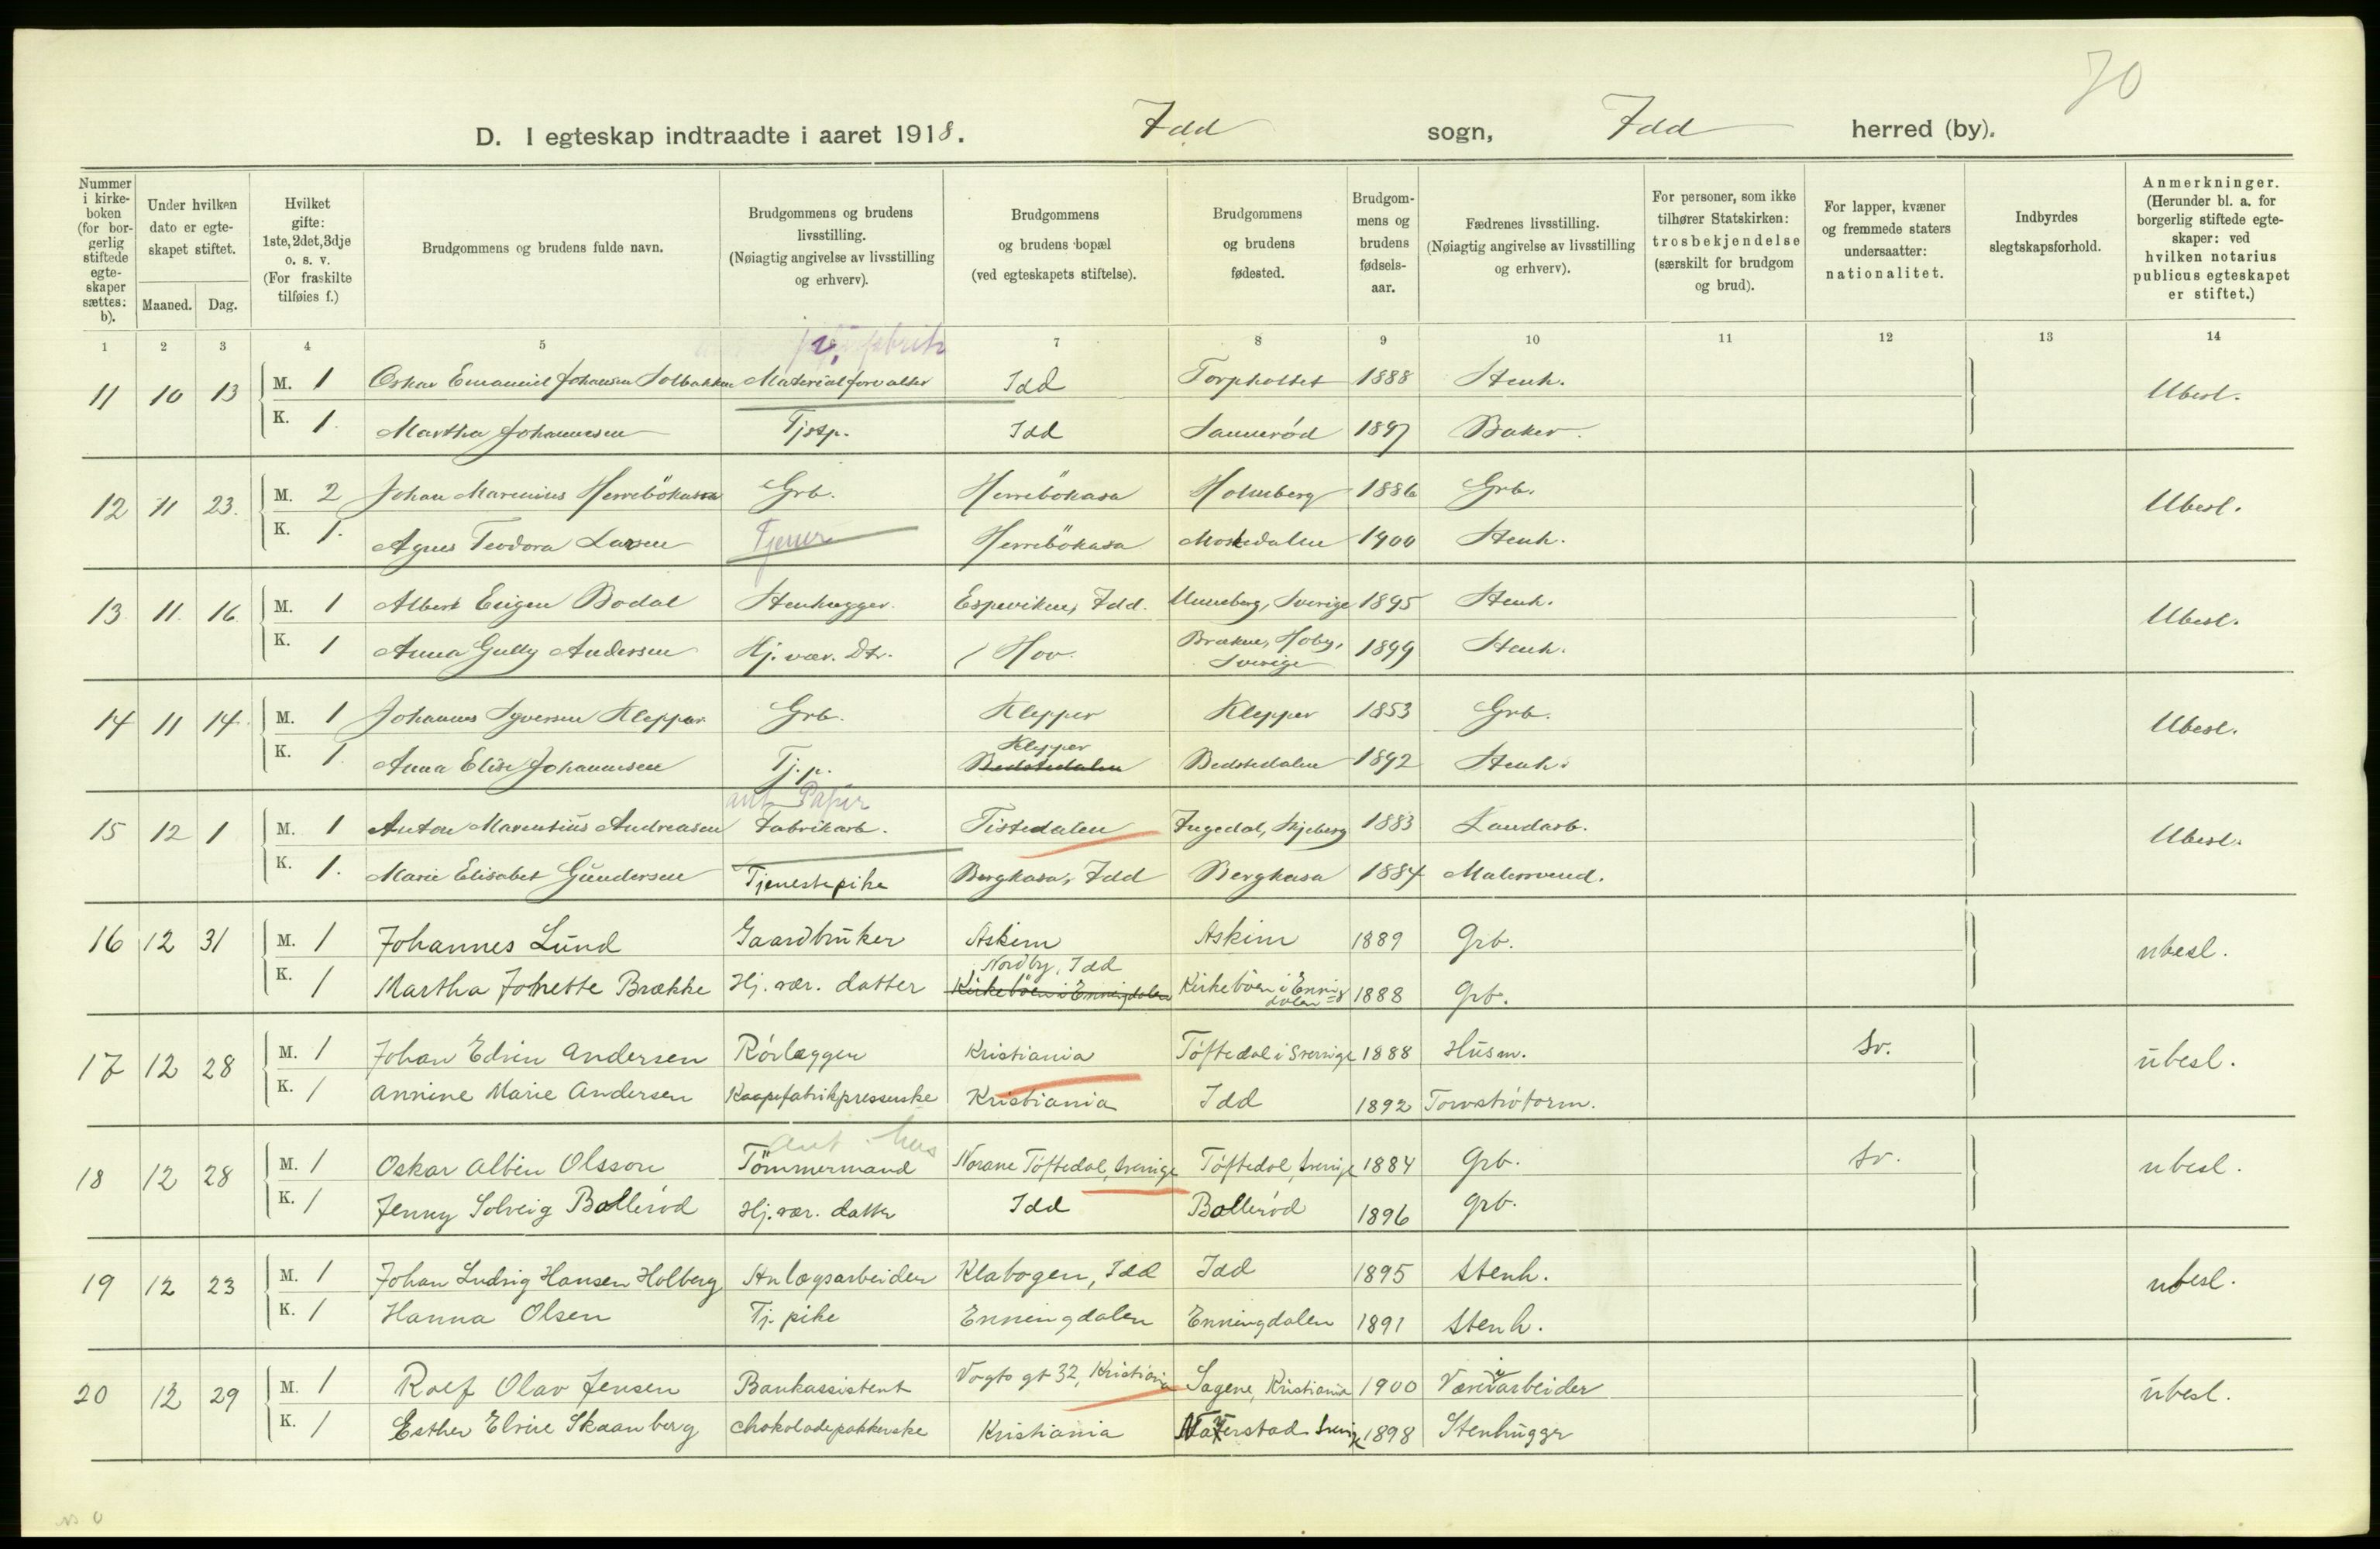 70
D. I egteskap indtraadte i aaret 1918. Idd sogn, Idd herred (by).
Nummer i kirkeboken (for borgerlig stiftede egteskaper sættes: b).
Under hvilken dato er egteskapet stiftet.
Maaned. Dag.
Hvilket gifte: 1ste, 2det, 3dje o. s. v. (For fraskilte tilføies f.)
Brudgommens og brudens fulde navn.
Brudgommens og brudens livsstilling. (Nøiagtig angivelse av livsstilling og erhverv).
Brudgommens og brudens bopæl (ved egteskapets stiftelse).
Brudgommens og brudens fødested.
Brudgommens og brudens fødselsaar.
Fædrenes livsstilling. (Nøiagtig angivelse av livsstilling og erhverv).
For personer, som ikke tilhører Statskirken: trosbekjendelse (særskilt for brudgom og brud).
For lapper, kvæner og fremmede staters undersaatter: nationalitet.
Indbyrdes slegtskapsforhold.
Anmerkninger. (Herunder bl. a. for borgerlig stiftede egteskaper: ved hvilken notarius publicus egteskapet er stiftet.)
1 2 3 4 5 7 8 9 10 11 12 13 14
11 10 13 M. 1 Oskar Emanuel Johansen Solbakken Materialforvalter Idd Torpholtet 1888 Stenh. Ubesl.
K. 1. Martha Johannesen Tjstp. Idd Sannerød 1897 Baker.
12 11 23. M. 2 Johan Marenius Herrebökasa Grb. Herrebökasa Holmberg 1886 Grb. Ubesl.
K. 1. Agnes Teodora Larsen Tjener Herrebökasa Moskedalen 1900 Stenh.
13 11. 16 M. 1 Albert Eugen Bodal Stenhugger. Espeviken, Idd. Muneberg, Sverige 1895 Stenh. Ubesl.
K. 1 Anna Gully Andersen Hj. vær. Dtr. Hov. Brækne, Hoby, Sverige 1899 Stenh.
14 11 14. M. 1 Johannes Syversen Klepper. Grb. Klepper Klepper 1853 Grb. Ubesl.
K. 1. Anna Elise Johannesen Tj. p. Klepper Bedstedalen Bedstedalen 1892 Stenh.
ant Papir
15 12 1 M. 1 Anton Marentius Andreasen Fabrikarb. Tistedalen Ingedal, Skjeberg 1883 Landarb. Ubesl.
K. 1. Marie Elisabet Gundersen Tjenestepike Bergkasa, Idd Bergkasa 1884 Malersvend.
16 12 31 M. 1 Johannes Lund Gaardbruker Askim Askim 1889 Grb. ubesl.
K. 1 Martha Johnette Brække Hj. vær. datter Nordby, Idd Kirkebøen i Enningdalen Kirkebøen i Enningdalen 1888 Grb.
17 12 28 M. 1 Johan Edvin Andersen Rørlægger Kristiania Töftedal i Sverrige 1888 Husm. Sv. ubesl.
K. 1 Annine Marie Andersen Kaapefabrikpresserske Kristiania Idd 1892 Torvströform.
ant hus
18 12 28 M. 1 Oskar Albin Olsson Tömmermand Norane Töftedal, Sverrige Töftedal, Sverrige 1884 Grb. Sv. ubesl.
K. 1 Jenny Solveig Ballerød Hj. vær. datter Idd Ballerød 1896 Grb.
19 12 23 M. 1 Johan Ludvig Hansen Holberg Anlægsarbeider Klabogen, Idd Idd 1895 Stenh. ubesl.
K. 1 Hanna Olsen Tj. pike Enningdalen Enningdalen 1891 Stenh.
20 12 29 M. 1 Rolf Olav Jensen Bankassistent Vogts gt 32, Kristiania Sagene, Kristiania 1900 Væveriarbeider ubesl.
K. 1 Esther Elvire Skaanberg Chokoladepakkerske Kristiania Sverige 1898 Stenhugger